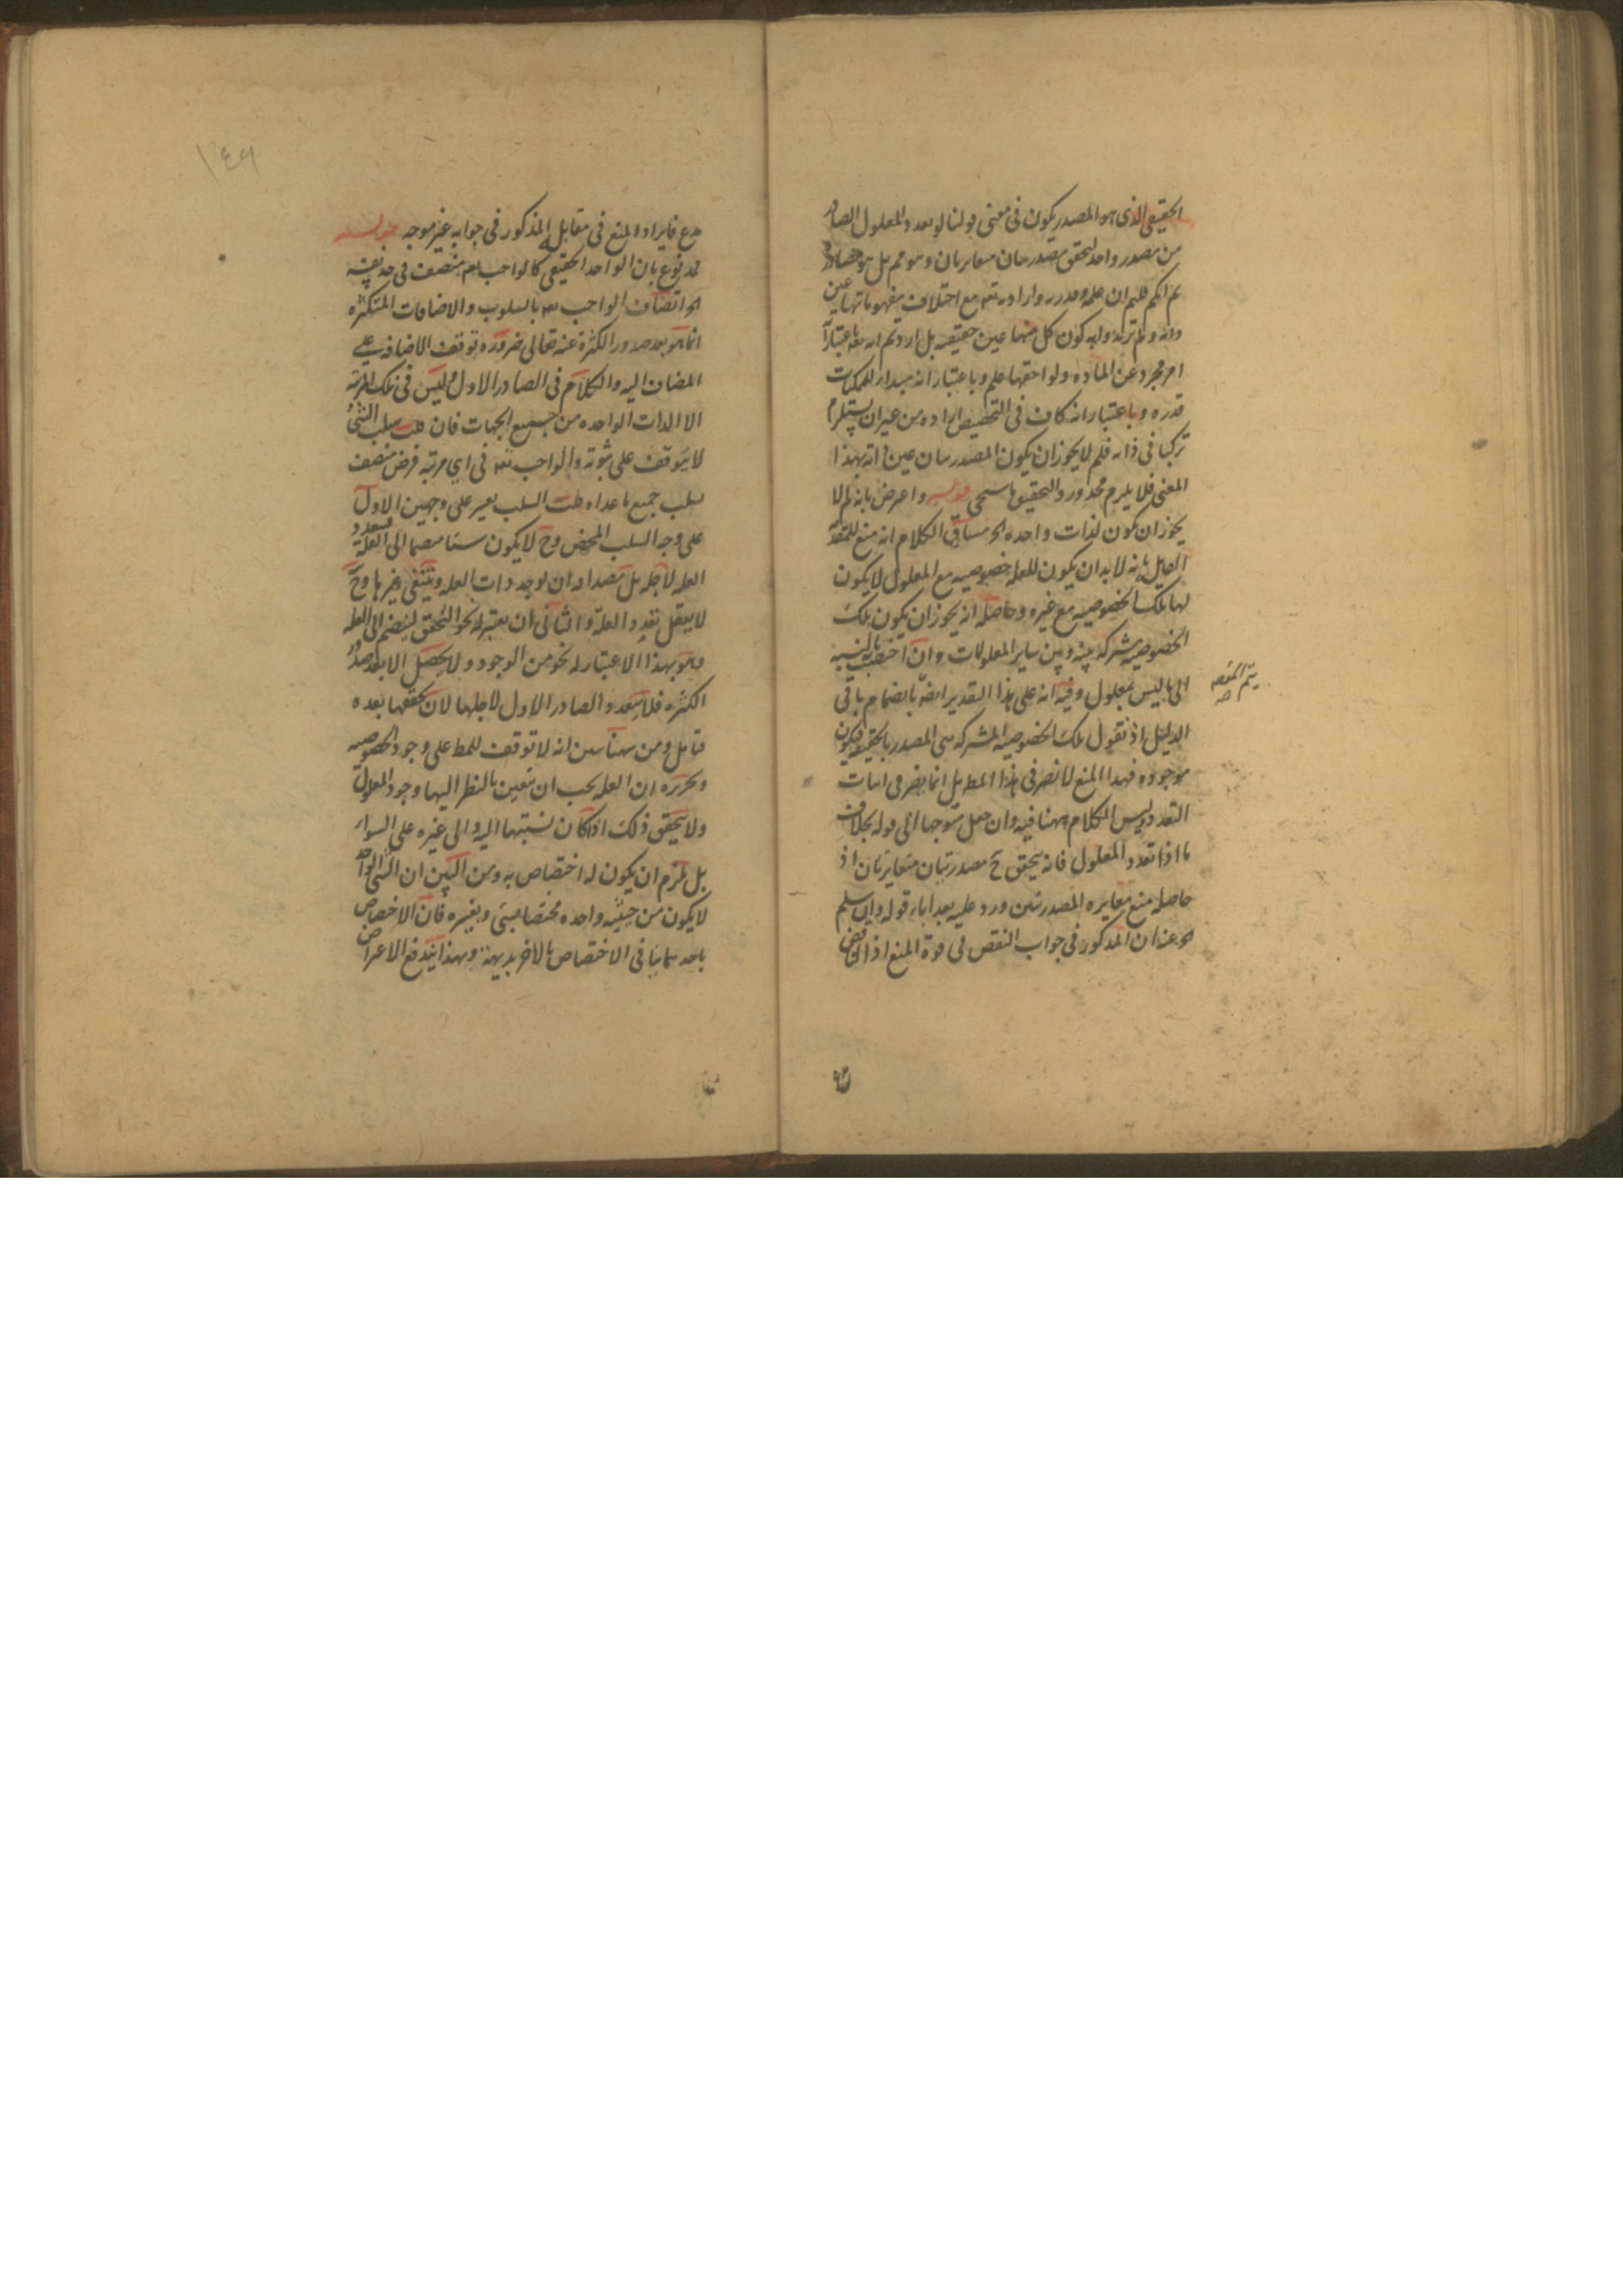 الحقيقى الذى هو المصدر يكون فى معنى قولنا لو تعدد المعلول الصادر
من مصدر واحد لتحقق مصدريتان متغايرتان وهو مم بل هو مصادرة
ثم انكم قلتم ان علمه وقدرته وارادته تعه مع اختلاف مفهوماتها عين
ذاته ولم تريدوا به كون كل منها عين حقيقته بل اردتم انه تعه باعتبار
امر مجرد عن المادة ولواحقها علم وباعتبار انه مبداء للممكنات
قدره وباعتبار انه كاف فى التخصيص اراده من غير ان يستلزم
تركبا فى ذاته فلم لا يجوز ان يكون المصدريتان عين ذاته بهذا
المعنى فلا يلزم محذور والتحقيق ما سيجى قوله واعترض بانه لم لا
يجوز ان يكون لذات واحده الخ مساق الكلام انه منع للمقدمة
القايلة بانه لا بد ان يكون للعله خصوصيه مع المعلول لا يكون
لها تلك الخصوصيه مع غيره وحاصله انه يجوز ان يكون تلك
الخصوصيه مشتركه بينه وبين ساير المعلولات وان اختصت بالنسبه
الى ما ليس بمعلول وفيه انه على هذا التقدير ايضا بانضمام باقى
الدليل اذ نقول تلك الخصوصيه المشتركه هى المصدر بالحقيقه فيكون
موجوده فهذا المنع لا يضر فى هذا المط بل انما يضر فى اثبات
التعدد وليس الكلام ههنا فيه وان جعل متوجها الى قوله بخلاف
ما اذا تعدد المعلول فانه يتحقق ح مصدريتان متغايرتان اذ
حاصله منع مغايره المصدريتين ورد عليه بعد اباء قوله وان سلم
الخ عنه ان المذكور فى جواب النقض فى قوة المنع اذ الناقض
يتم المقصه
صح
١٤٩
مدع فايراد المنع فى مقابل المذكور فى جوابه غير موجه قوله
مدفوع بان الواحد الحقيقى كالواجب تعه متصف فى حد نفسه
الخ اتصاف الواجب تعه بالسلوب والاضافات المتكثره
انما هو بعد صدور الكثرة عنه تعالى ضروره توقف الاضافه على
المضاف اليه والكلام فى الصادر الاول وليس فى تلك المرتبه
الا الذات الواحده من جميع الجهات فان قلت سلب الشئ
لا يتوقف على ثبوته والواجب تعه فى اى مرتبه فرض متصف
بسلب جميع ما عداه قلت السلب يعتبر على وجهين الاول
على وجه السلب المحض وح لا يكون شيئا منضما الى العلة فيتعدد
العله لاجله بل مصداقه ان يوجد ذات العله وينتفى غيرها وح
لا يعقل تعدد العلة والثانى ان يعتبر له نحو التحقق لينضم الى العله
وهو بهذا الاعتبار له نحو من الوجود ولا يحصل الا بعد صدور
الكثره فلا يتعدد الصادر الاول لاجلها لان تحققها بعده
فتامل ومن ههنا تبين انه لا توقف للمط على وجود الخصوصيه
وتحريره ان العله يجب ان يتعين بالنظر اليها وجود المعلول
ولا يتحقق ذلك اذا كان نسبتها اليه والى غيره على السواء
بل يلزم ان يكون له اختصاص به ومن البين ان الشئ الواحد
لا يكون من حيثيه واحده مختصا بشئ وبغيره فان الاختصاص
باحدهما ينافى الاختصاص بالاخر بديهة وبهذا يندفع الاعتراض